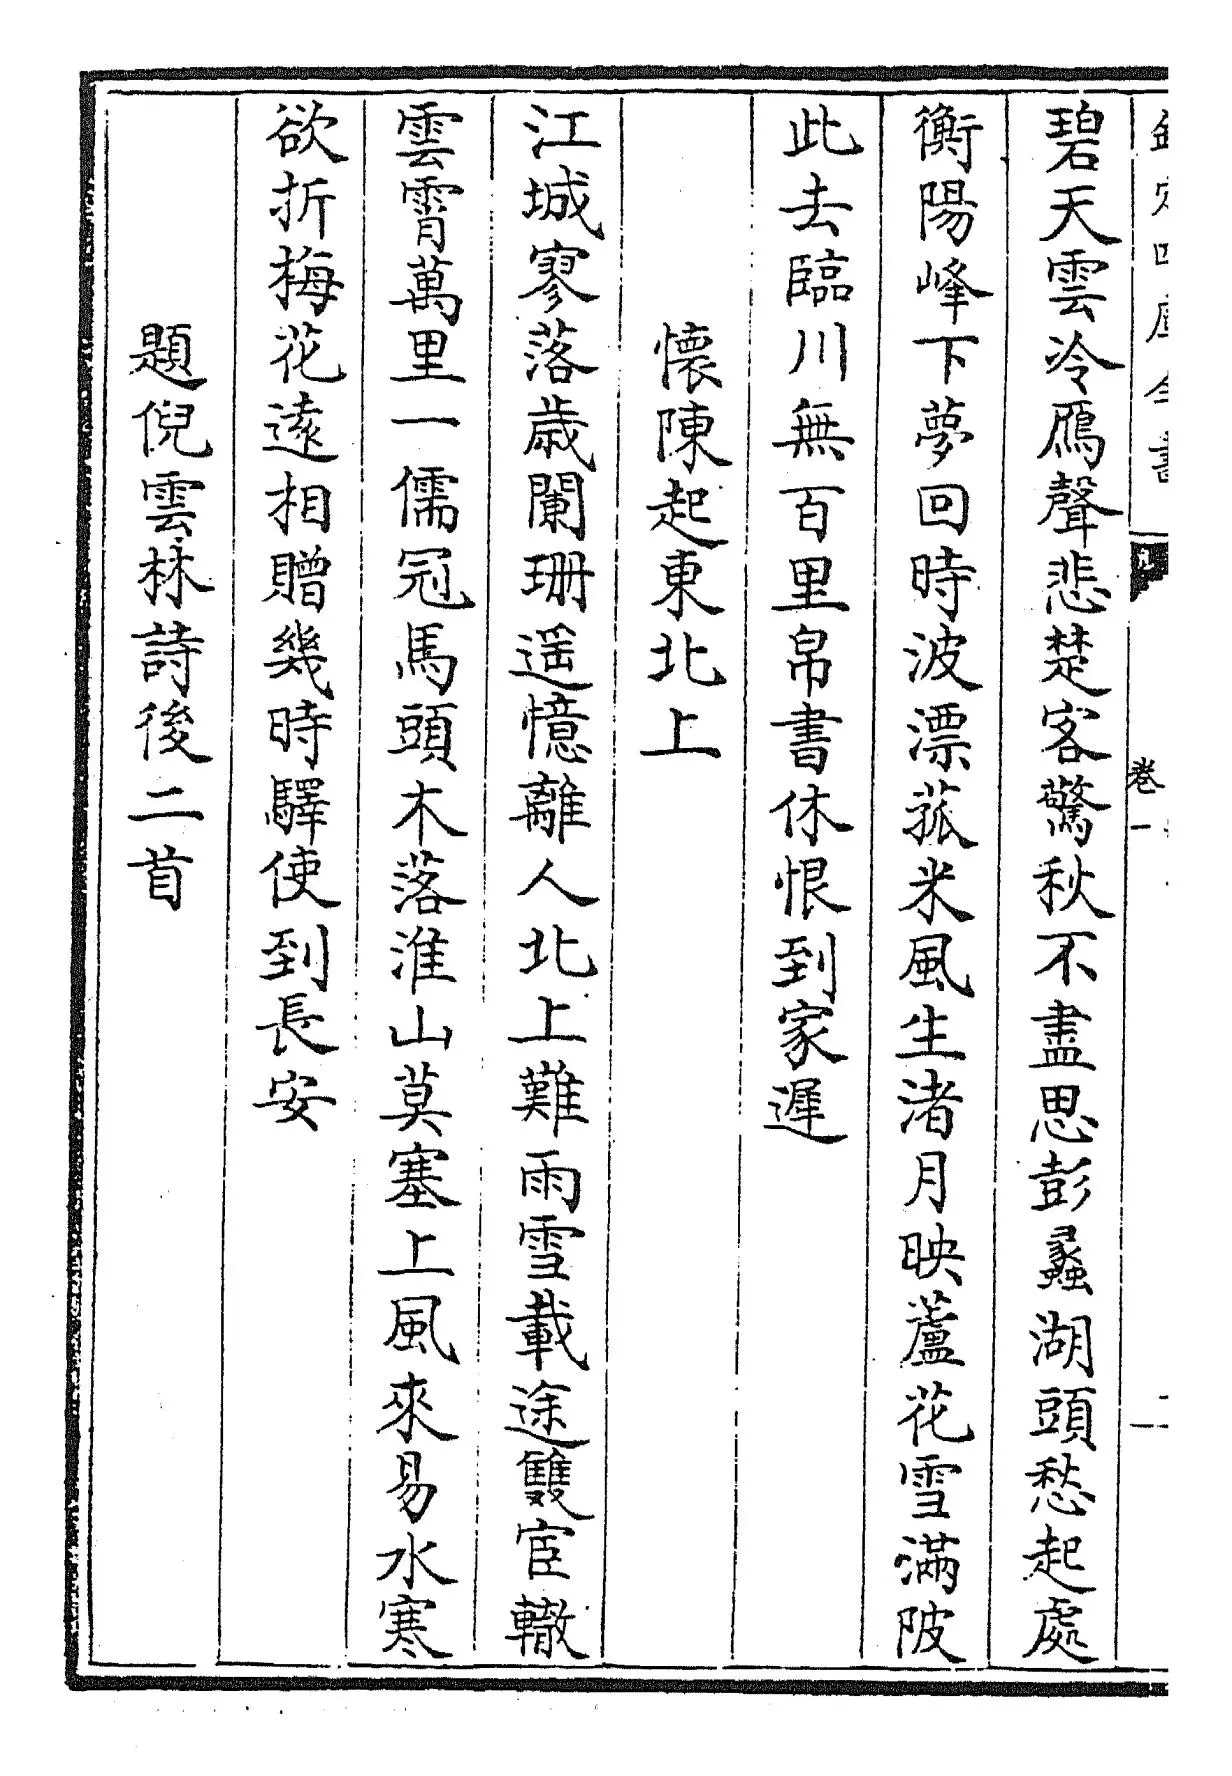 欽定四庫全書
卷一
碧天雲冷鴈聲悲楚客驚秋不盡思彭蠡湖頭愁起處
衡陽峰下夢回時波漂菰米風生渚月映蘆花雪滿陂
此去臨川無百里帛書休恨到家遲
懷陳起東北上
江城寥落歳闌珊遥憶離人北上難雨雪載途雙宦轍
雲霄萬里一儒冠馬頭木落淮山莫塞上風來易水寒
欲折梅花遠相贈幾時驛使到長安
題倪雲林詩後二首